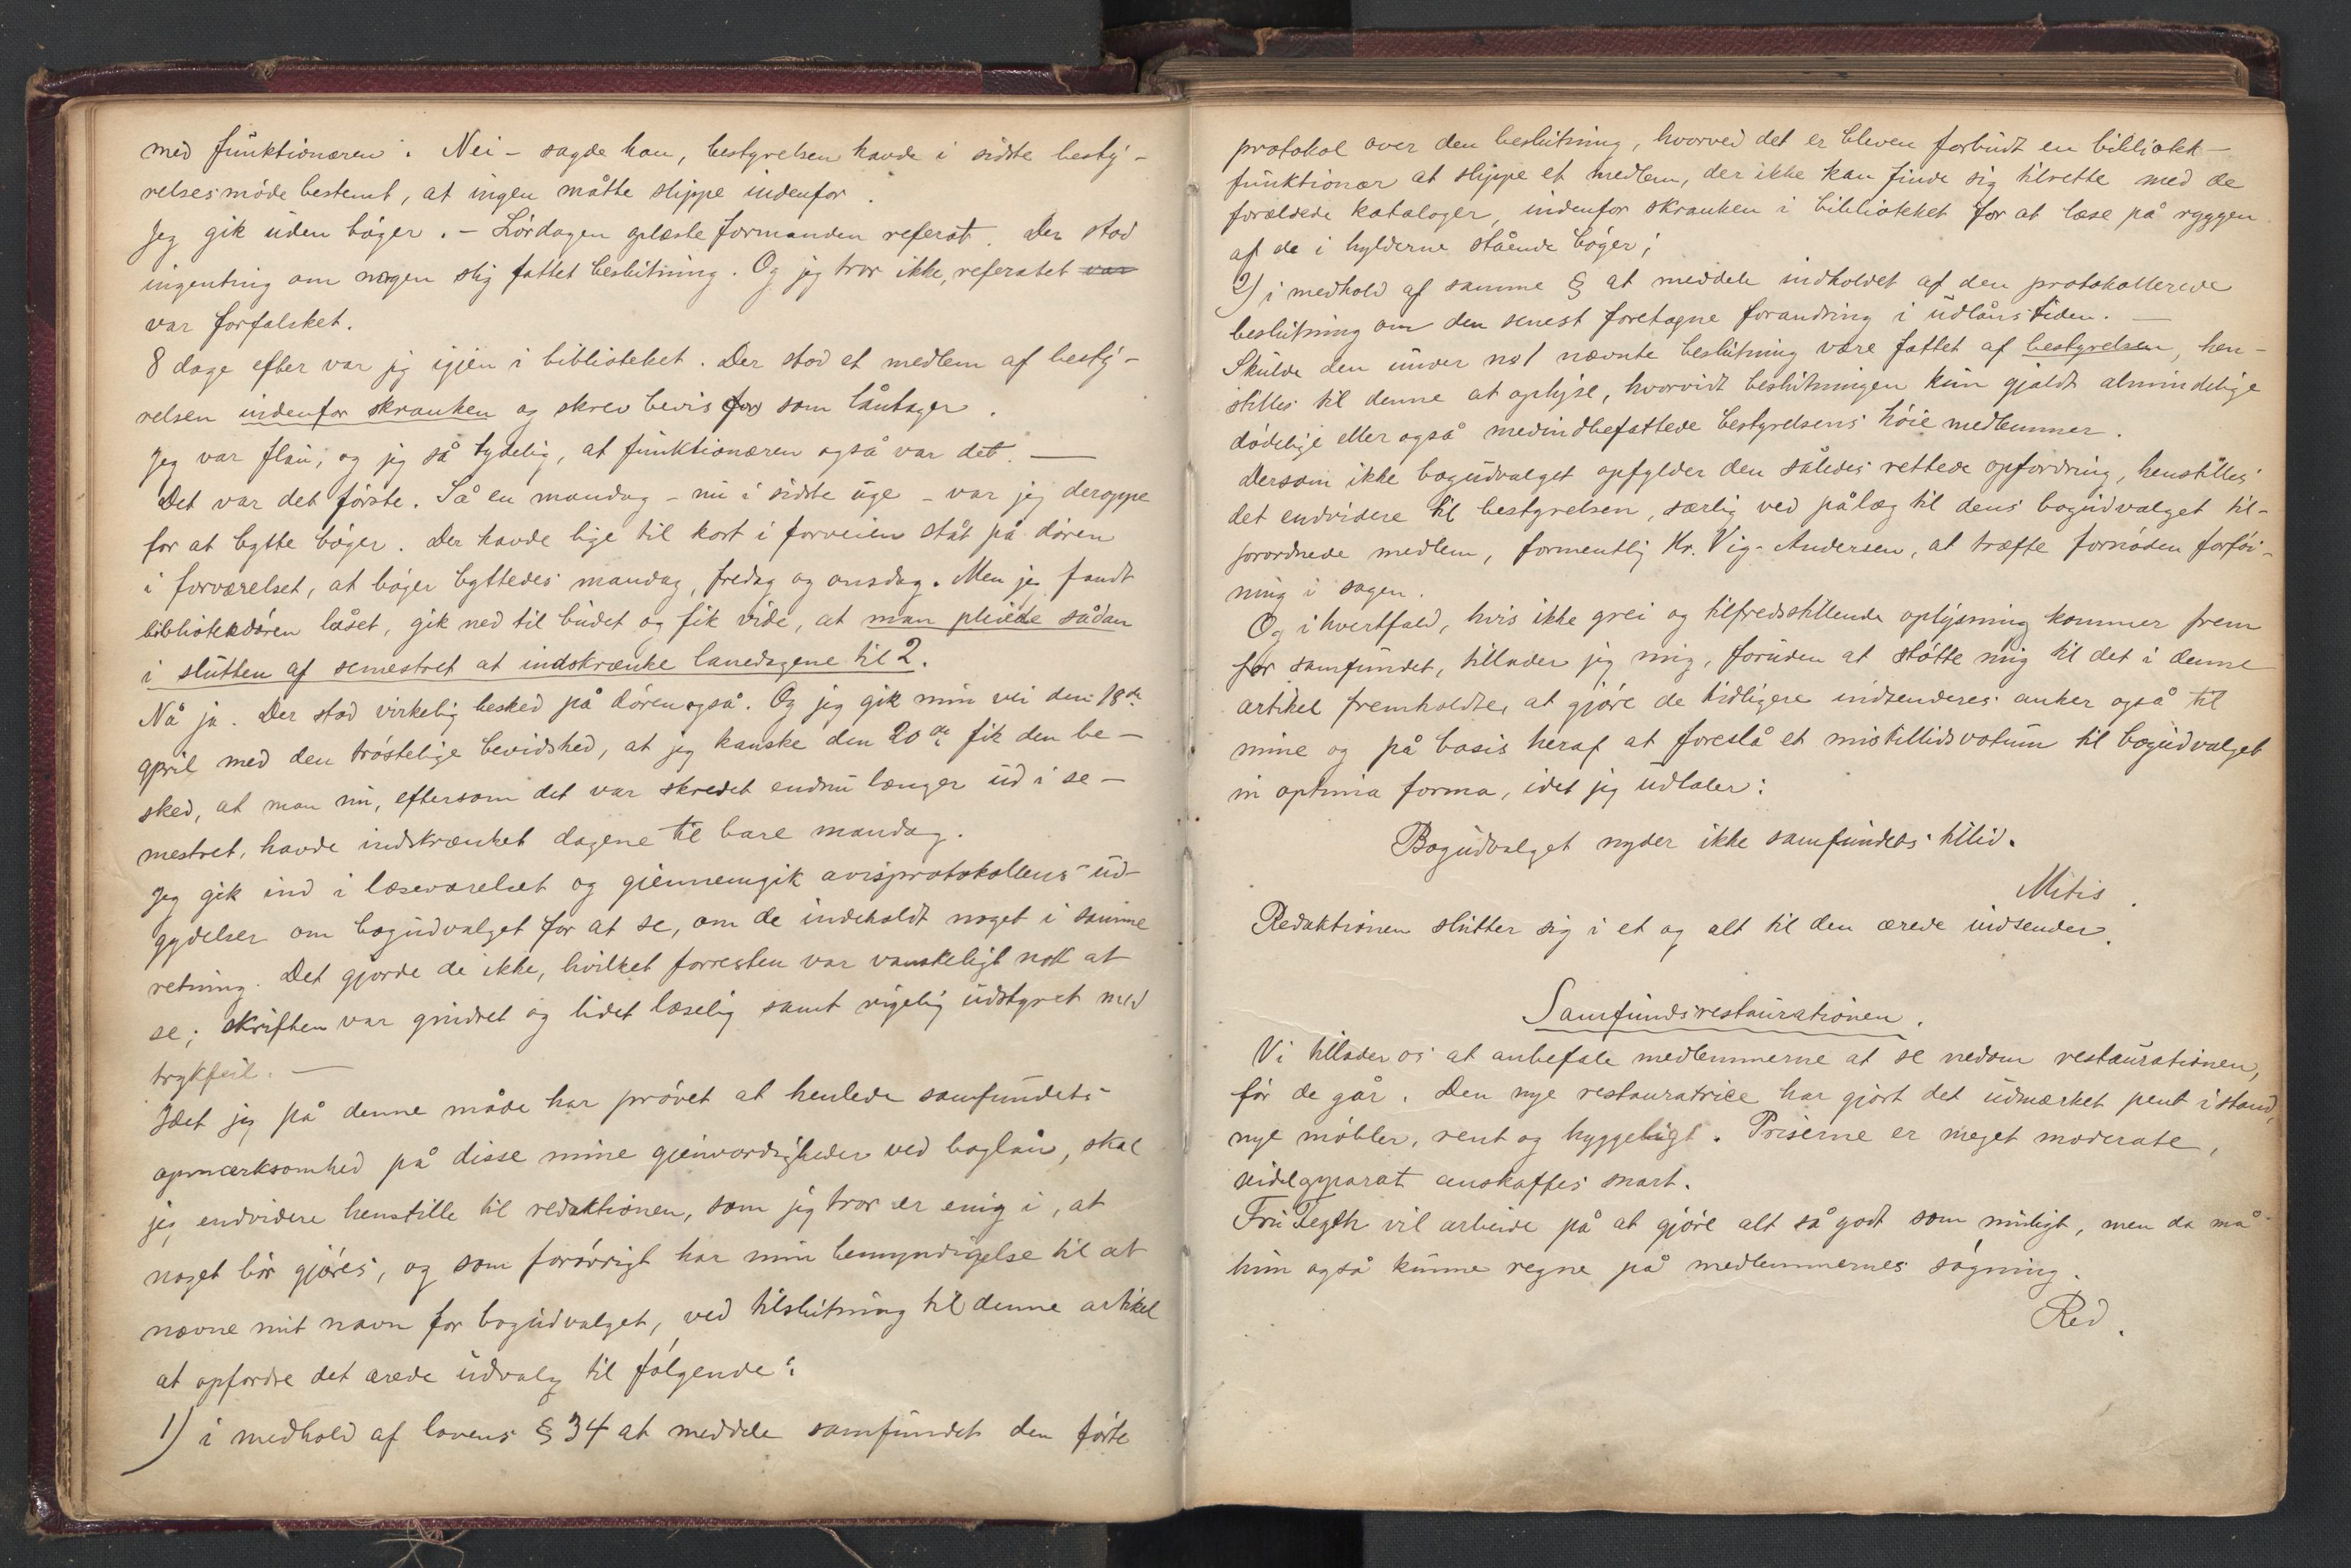 med funktionæren. Nei – sagde han, bestyrelsen havde i sidste besty-
relsesmøde bestemt, at ingen måtte slippe indenfor.
Jeg gik uden bøger. – Lørdagen oplæste formanden referat. Der stod
ingenting om nogen slig fattet beslutning. Og jeg tror ikke, referatet var
var forfalsket.
8 dage efter var jeg igjen i biblioteket. Der stod et medlem af besty-
relsen indenfor skranken og skrev bevis for som låntager.
Jeg var flau, og jeg så tydelig, at funktionæren også var det. —
Det var det første. Så en mandag – nu i sidste uge – var jeg deroppe
for at bytte bøger. Der havde lige til kort i forveien ståt på døren
i forværelset, at bøger byttedes mandag, fredag og onsdag. Men jeg fandt
bibliotekdøren låset, gik ned til budet og fik vide, at man pleiede sådan
i slutten af semestret at indskrænke lanedagene til 2.
Nå ja. Der stod virkelig besked på døren også. Og jeg gik min vei den 18de
april med den trøstelige bevidshed, at jeg kanske den 20de fik den be-
sked, at man nu, eftersom det var skredet endnu længer ud i se-
mestret, havde indskrænket dagene til bare mandag.
Jeg gik ind i læseværelset og gjennemgik avisprotokollens ud-
gydelser om bogudvalget for at se, om de indeholdt noget i samme
retning. Det gjorde de ikke, hvilket forresten var vanskeligt nok at
se; skriften var gnidret og lidet læselig samt rigelig udstyret med
trykfeil. —
Idet jeg på denne måde har prøvet at henlede samfundets
opmærksomhed på disse mine gjenvordigheder ved boglån, skal
jeg endvidere henstille til redaktionen, som jeg tror er enig i, at
noget bør gjøres, og som forøvrigt har min bemyndigelse til at
nævne mit navn for bogudvalget, ved tilslutning til denne artikel
at opfordre det ærede udvalg til følgende:
1) i medhold af lovens § 34 at meddele samfundet den førte
protokol over den beslutning, hvorved det er bleven forbudt en bibliotek-
funktionær at slippe et medlem, der ikke kan finde sig tilrette med de
forældede kataloger, indenfor skranken i bibliotekket for at læse på ryggen
af de i hylderne stående bøger;
2) i medhold af samme § at meddele indholdet af den protokollerede
beslutning om den senest foretagne forandring i udlånstiden. —
Skulde den under no 1 nævnte beslutning være fattet af bestyrelsen, hen-
stilles til denne at oplyse, hvorvidt beslutningen kun gjaldt almindelige
dødelige eller også medindbefattede bestyrelsens høie medlemmer.
Dersom ikke bogudvalget opfylder den således rettede opfordring, henstilles
det endvidere til bestyrelsen, særlig ved pålæg til dens bogudvalget til-
forordnede medlem, formentlig Hr. Vig-Andersen, at træffe fornøden forføi-
ning i sagen.
Og i hvertfald, hvis ikke grei og tilfredsstillende oplysning kommer frem
for samfundet, tillader jeg mig, foruden at støtte mig til det i denne
artikel fremholdte, at gjøre de tidligere indsenderes anker også til
mine og på basis heraf at foreslå et mistillidsvotum til bogudvalget
in optima forma, idet jeg udtaler:
Bogudvalget nyder ikke samfundets tillid.
Mitis.
Redaktionen slutter sig i et og alt til den ærede indsender.
Samfundsrestaurationen.
Vi tillader os at anbefale medlemmerne at se nedom restaurationen,
før de går. Den nye restauratrice har gjort det udmærket pent istand,
nye møbler, rent og hyggeligt. Priserne er meget moderate,
ølapparat anskaffes snart.
Fru Tegth vil arbeide på at gjøre alt så godt som muligt, men da må
hun også kunne regne på medlemmernes søgning.
Red.